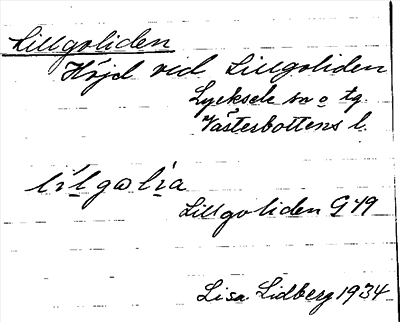 Lillgoliden
Höjd ved Lillgoliden
Lycksele sn o tg.
Västerbottens l.
lilgωlia
Lillgoliden G 49
Lisa Lidberg 1934